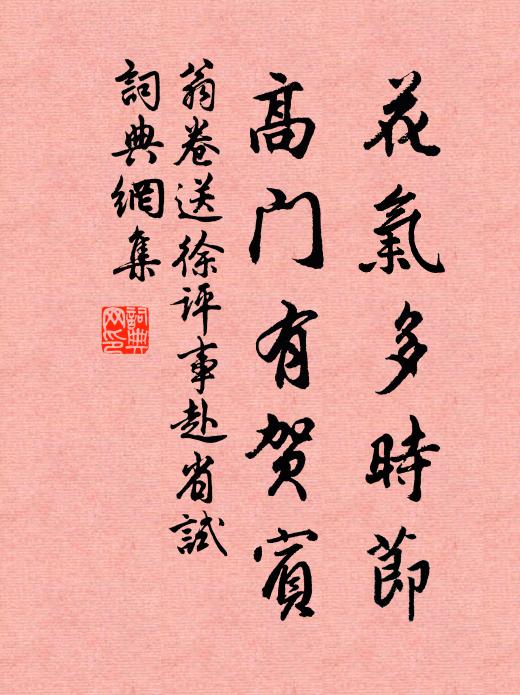 花氣多時節
高门有贺賓
翁卷送徐评事赴省試
詞典網集
詞典网印